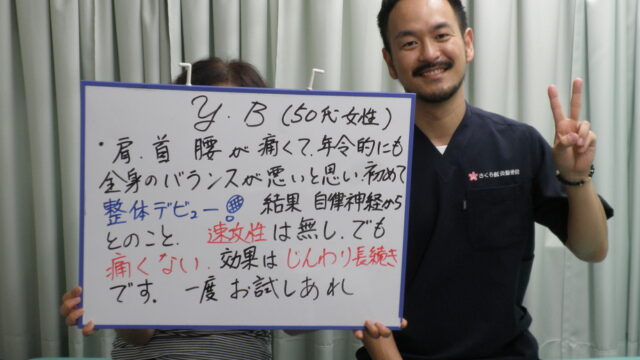 Y.B (50代女性)
・肩.首 腰が痛くて、年令的にも
全身のバランスが悪いと思い、初めて
整体デビュー! 結果 自律神経から
とのこと、速攻性は無し、でも
痛くない、効果はじんわり長続き
です。一度お試しあれ
さくら